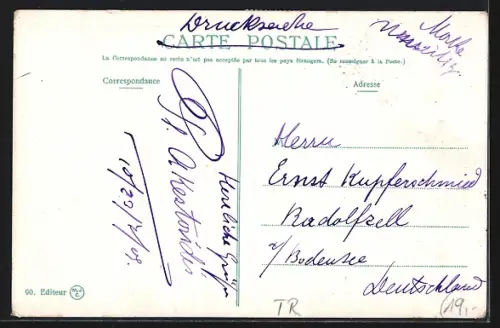 Drucksache
CARTE POSTALE
La Correspondance au recto n'est pas acceptée par tous les pays étrangers. (Se renseigner à la Poste.)
Correspondance
Adresse
Herzliche Grüße
10/23/7/09
Herrn
Ernst Kupferschmied
Radolfzell
a/Bodensee
Deutschland
90. Editeur
TR
(19,-